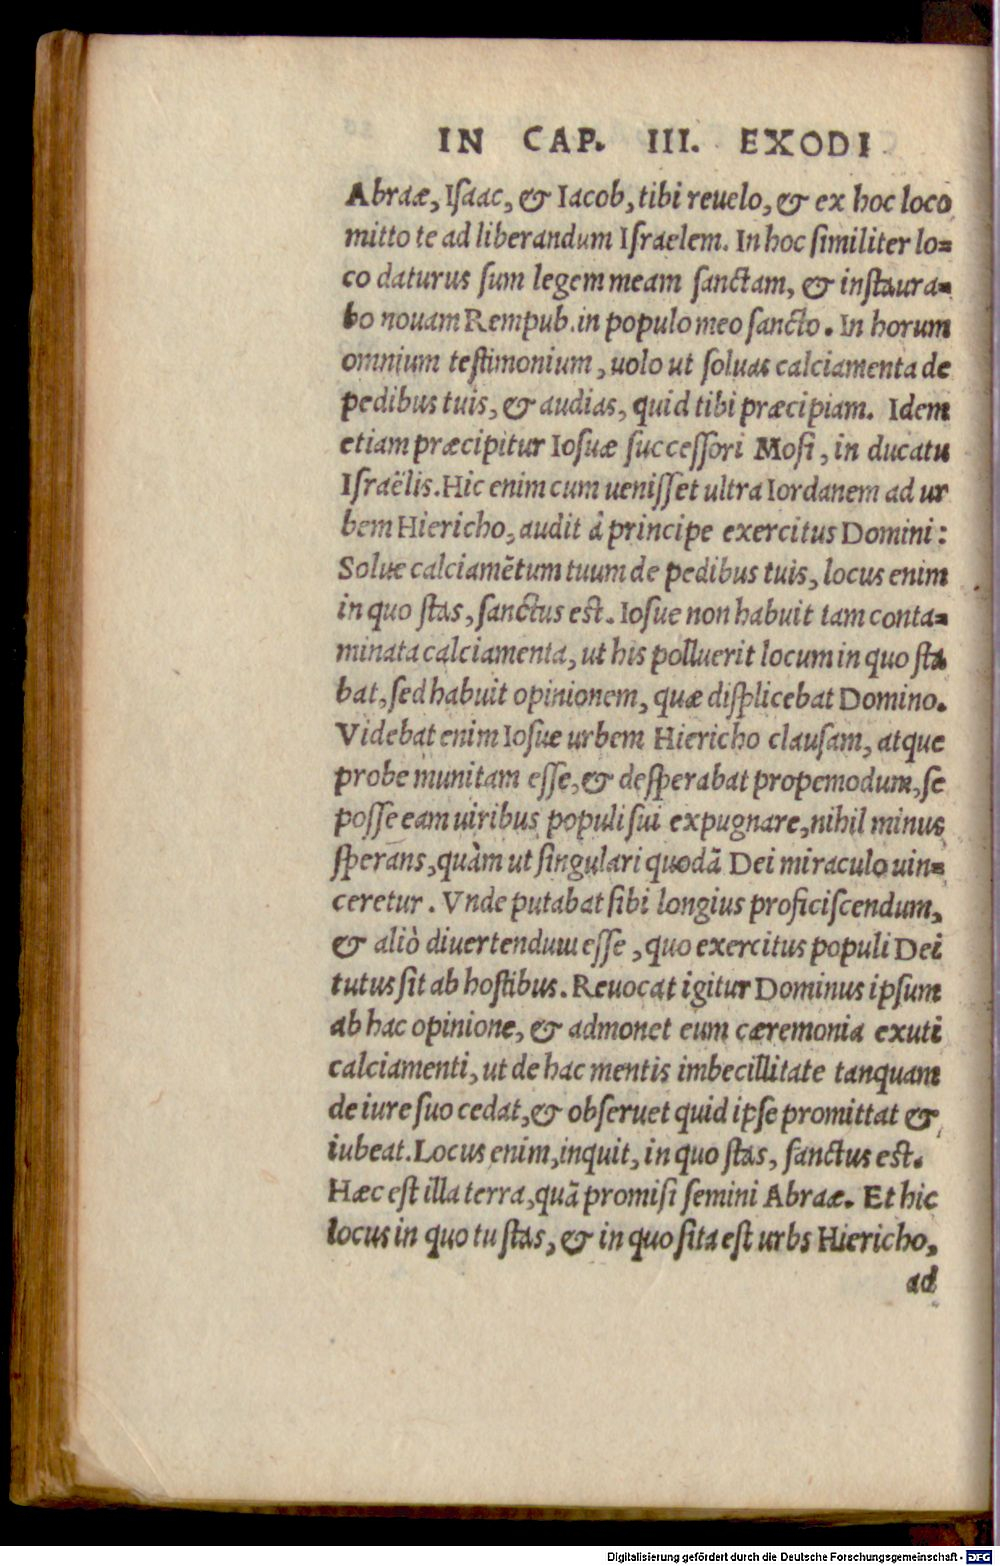 IN CAP. III. EXODI
Abraæ, Iſaac, & Iacob, tibi reuelo, & ex hoc loco
mitto te ad liberandum Iſraelem. In hoc ſimiliter lo=
co daturus ſum legem meam ſanctam, & inſtaura=
bo nouam Rempub. in populo meo ſancto. In horum
omnium teſtimonium, uolo ut ſoluas calciamenta de
pedibus tuis, & audias, quid tibi præcipiam. Idem
etiam præcipitur Ioſuæ ſucceſſori Moſi, in ducatu
Iſraëlis. Hic enim cum ueniſſet ultra Iordanem ad ur
bem Hiericho, audit à principe exercitus Domini:
Solue calciamẽtum tuum de pedibus tuis, locus enim
in quo ſtas, ſanctus eſt. Ioſue non habuit tam conta=
minata calciamenta, ut his polluerit locum in quo ſta
bat, ſed habuit opinionem, quæ diſplicebat Domino.
Videbat enim Ioſue urbem Hiericho clauſam, atque
probe munitam eſſe, & deſperabat propemodum, ſe
poſſe eam uiribus populi ſui expugnare, nihil minus
ſperans, quàm ut ſingulari quodã Dei miraculo uin=
ceretur. Vnde putabat ſibi longius proficiſcendum,
& aliò diuertendum eſſe, quo exercitus populi Dei
tutus ſit ab hoſtibus. Reuocat igitur Dominus ipſum
ab hac opinione, & admonet eum cæremonia exuti
calciamenti, ut de hac mentis imbecillitate tanquam
de iure ſuo cedat, & obſeruet quid ipſe promittat &
iubeat. Locus enim, inquit, in quo ſtas, ſanctus eſt.
Hæc eſt illa terra, quã promiſi ſemini Abraæ. Et hic
locus in quo tu ſtas, & in quo ſita eſt urbs Hiericho,
ad
Digitalisierung gefördert durch die Deutsche Forschungsgemeinschaft - DFG